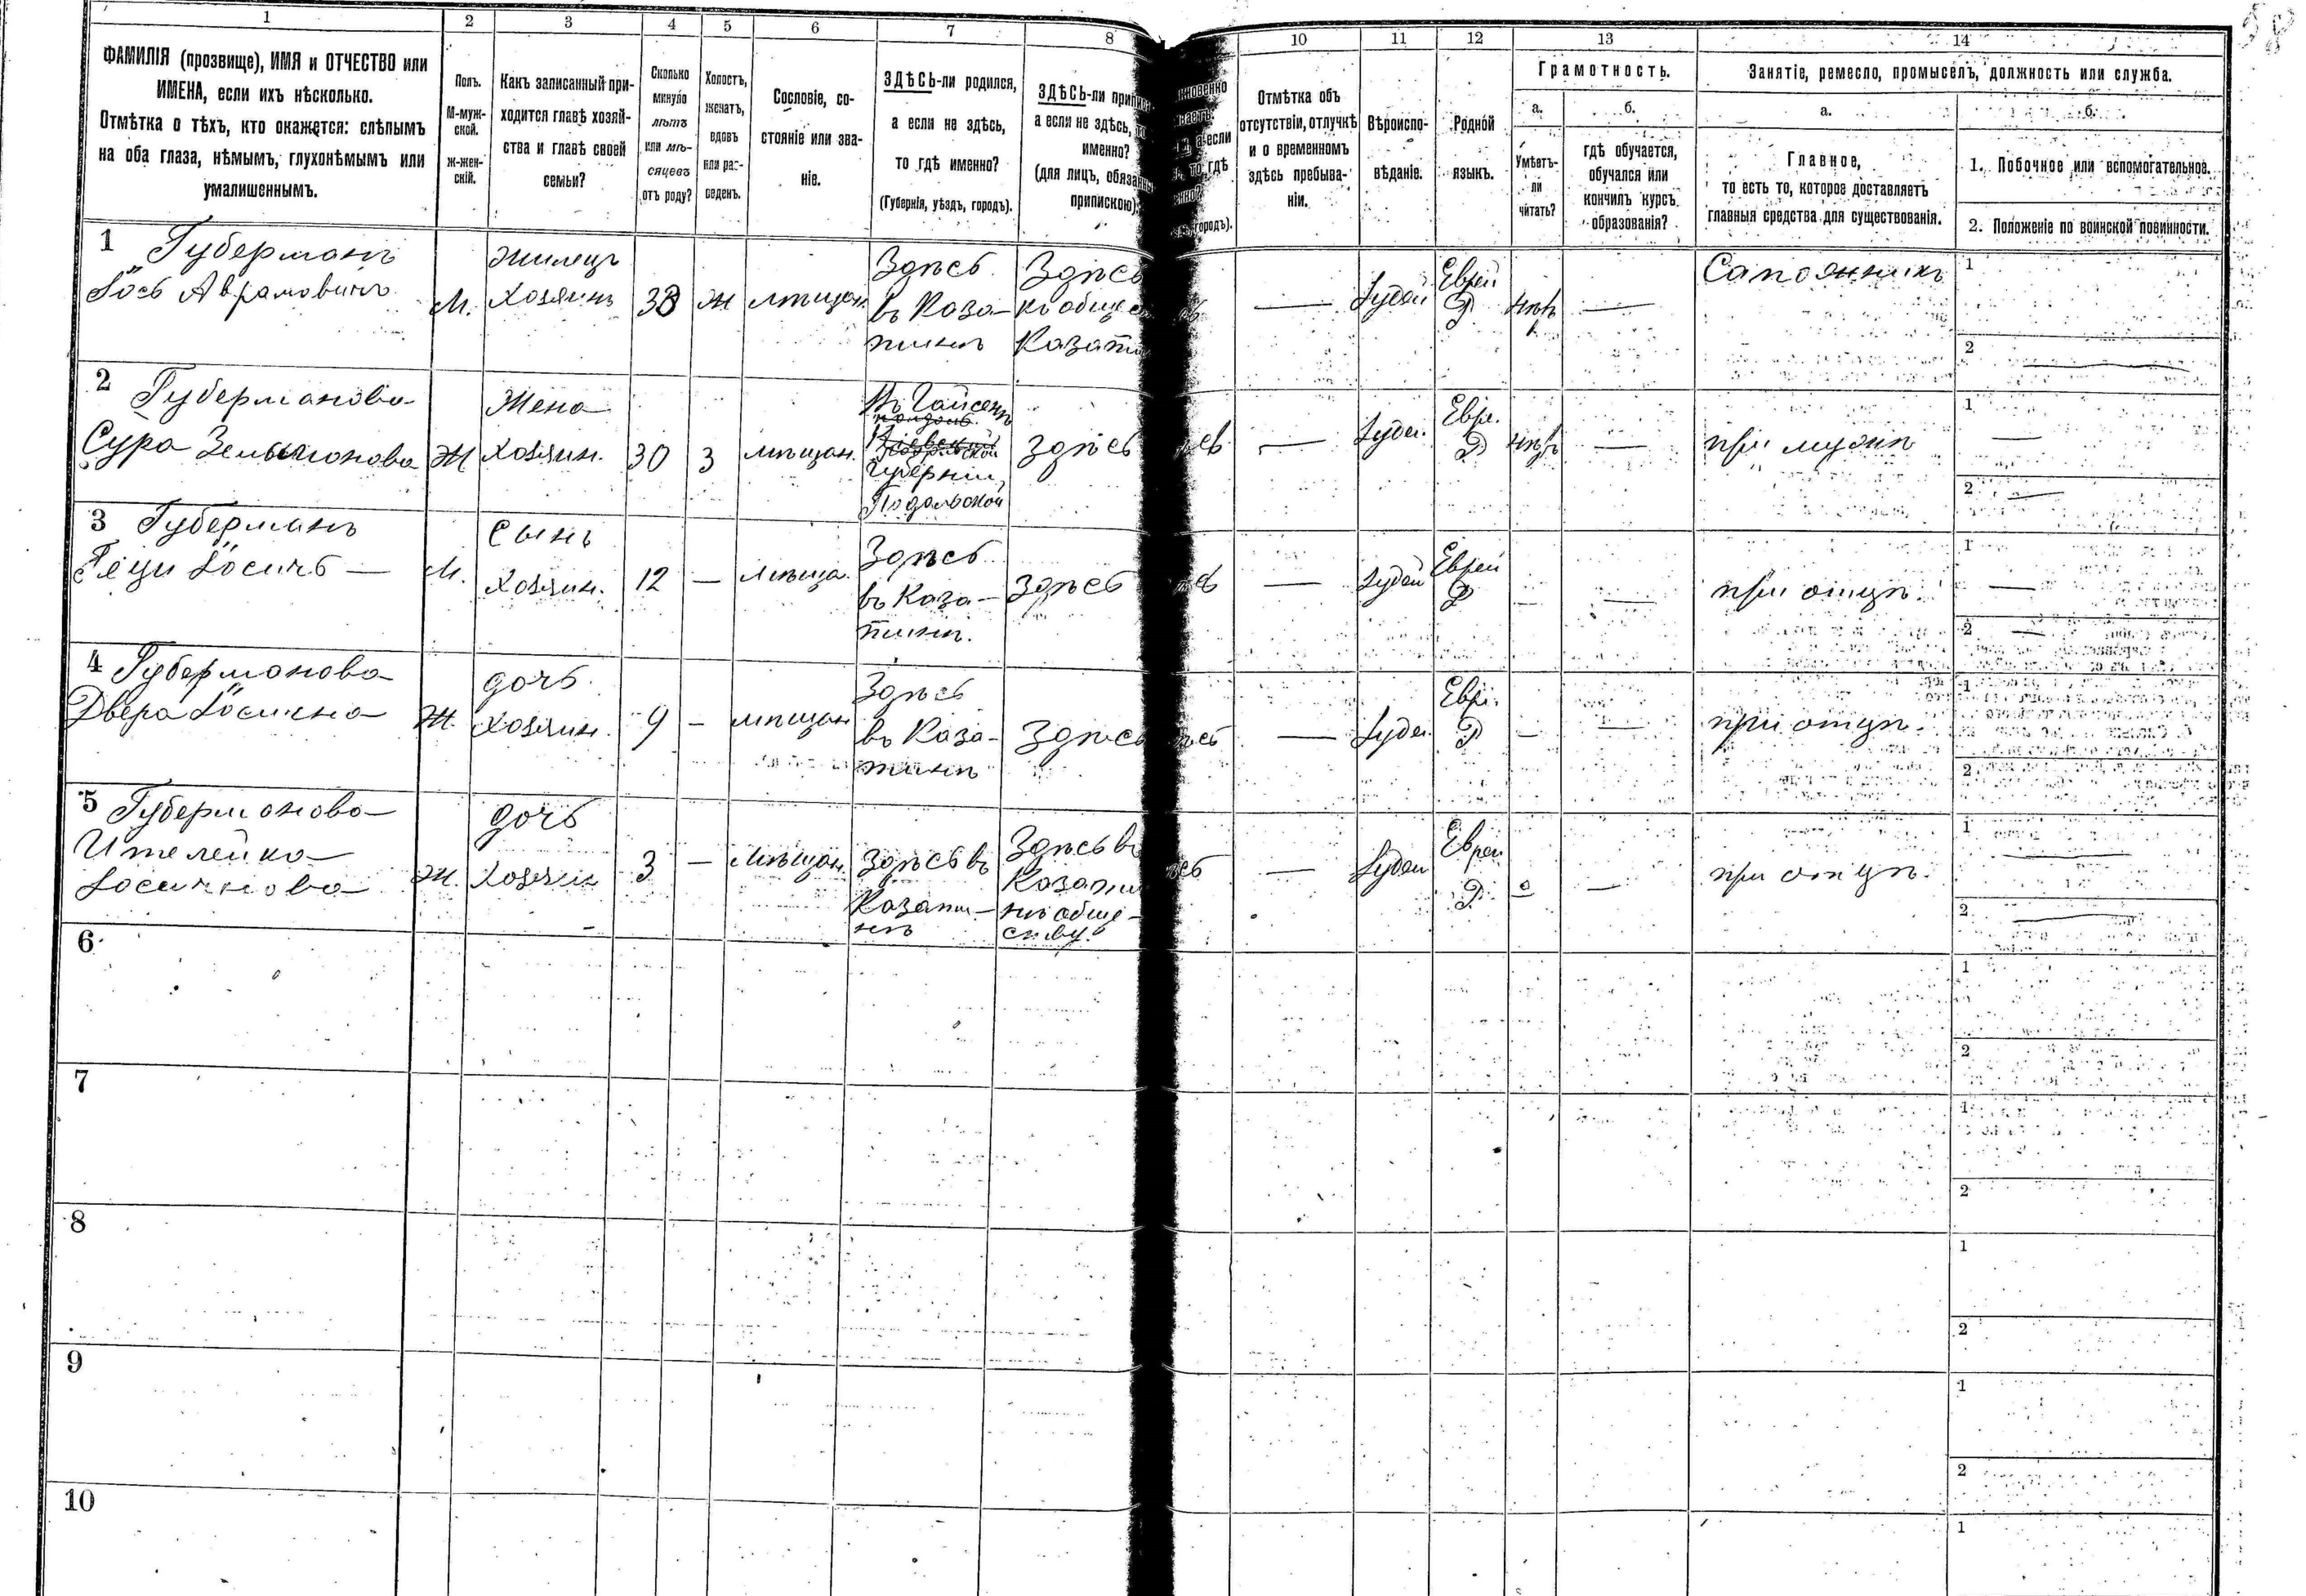 1 2 3 4 5 6 7 8 10 11 12 13 14
ФАМИЛІЯ (прозвище), ИМЯ и ОТЧЕСТВО или
ИМЕНА, если ихъ нѣсколько.
Отмѣтка о тѣхъ, кто окажется: слѣпымъ
на оба глаза, нѣмымъ, глухонѣмымъ или
умалишеннымъ.
Полъ.
М-муж-
ской.
ж-жен-
скій.
Какъ записанный при-
ходится главѣ хозяй-
ства и главѣ своей
семьи?
Сколько
минуло
лѣтъ
или мѣ-
сяцевъ
отъ роду?
Холостъ,
женатъ,
вдовъ
или раз-
веденъ.
Сословіе, со-
стояніе или зва-
ніе.
ЗДѢСЬ-ли родился,
а если не здѣсь,
то гдѣ именно?
(Губернія, уѣздъ, городъ).
ЗДѢСЬ-ли
а если не здѣсь,
именно?
(для лицъ,
припискою)
а если
то, гдѣ
городъ).
Отмѣтка объ
отсутствіи, отлучкѣ
и о временномъ
здѣсь пребыва-
ніи.
Вѣроиспо-
вѣданіе.
Родной
языкъ.
Грамотность.
а.
Умѣетъ-
ли
читать?
б.
гдѣ обучается,
обучался или
кончилъ курсъ
образованія?
Занятіе, ремесло, промыселъ, должность или служба.
а.
Главное,
то есть то, которое доставляетъ
главныя средства для существованія.
б.
1. Побочное или вспомогательное.
2. Положеніе по воинской повинности.
1 Губерманъ
Іось Аврамовичъ
М.
Жилецъ
Хозяинъ
38
Ж
мѣщан.
Здѣсь
въ Каза-
тинѣ
Здѣсь
къ общес
Казати
—
Іудей
Еврей
нѣтъ
—
Сапожникъ
1
2 —
2 Губерманова
Сура
Ж
Жена
Хозяин.
30
З
мѣщан.
Губерніи
Подольской
Здѣсь
—
Іудей.
Евре.
нѣтъ
—
при мужѣ
1 —
2 —
3 Губерманъ
Іосичъ —
М.
Сынъ
Хозяин.
12
—
Мѣща.
Здѣсь
въ Каза-
тинѣ.
Здѣсь
—
Іудей
Еврей
—
—
при отцѣ.
1 —
2 —
4 Губерманова
Двера Іосична
Ж.
дочь
Хозяин.
9
—
мѣщан
Здѣсь
въ Каза-
тинѣ
Здѣсь
—
Іудей
Евре.
—
—
при отцѣ.
1
2
5 Губерманова
Ителейка
Іосичнова
Ж.
дочь
Хозяин
3
—
Мѣщан.
Здѣсь въ
Казати-
нѣ
Здѣсь въ
Казати
нѣ обще-
ству
—
Іудеи
Еврей
—
при отцѣ.
1 —
2 —
6
1
2
7
1
2
8
1
2
9
1
2
10
1